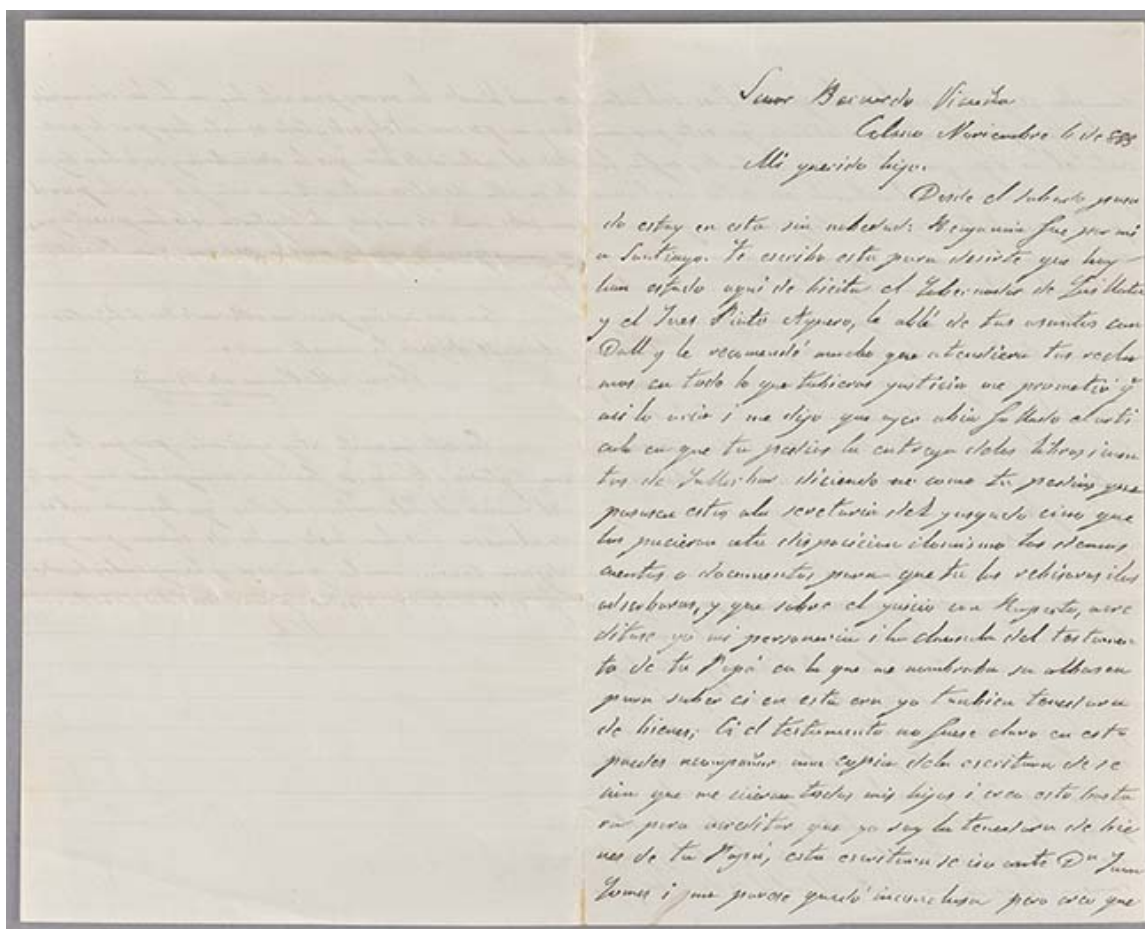 Senor Bernardo Vicuña
Colmo Noviembre 6 de 888
Mi querido hijo.
Desde el Sabado pasa
do estoy en esta sin nobedad: Benjamin fue por mi
a Santiago. Te escribo esta para desirte que hoy
han estado aqui de bicita el Gobernador de Quillota
y el Jues Pinto Aguero, le ablé de tus asuntos con
Doll y le recomendé mucho que atendiera tus recla
mos en todo lo que tubieras justicia me prometió qe
asi lo aria i me dijo que ayer abia fallado el arti
culo en que tu pedias la entrega delos libros i cuen
tas de diciendo no como tu pedias que
pasasen estos ala secretaria del jusgado cino que
los pucieran atu disposicion i lo mismo los demas
cuentas o documentos para que tu los rebisaras i los
, y que sobre el juicio con Ruperto, acre
ditase yo mi personeria i la clausula del testamen
to de tu Papá en la que me nombraba su albasea
para saber ci en esta era yo tambien tenedora
de bienes; Ci el testamento no fuese claro en esto
puedes acompañar una copia dela escritura de se
cion que me icieron todos mis hijos i creo esto basta
ra para acreditar que yo soy la tenedora de bie
nes de tu Papá, esta escritura se iso ante Dn Juan
Gomes i me parese quedó inconclusa pero creo que